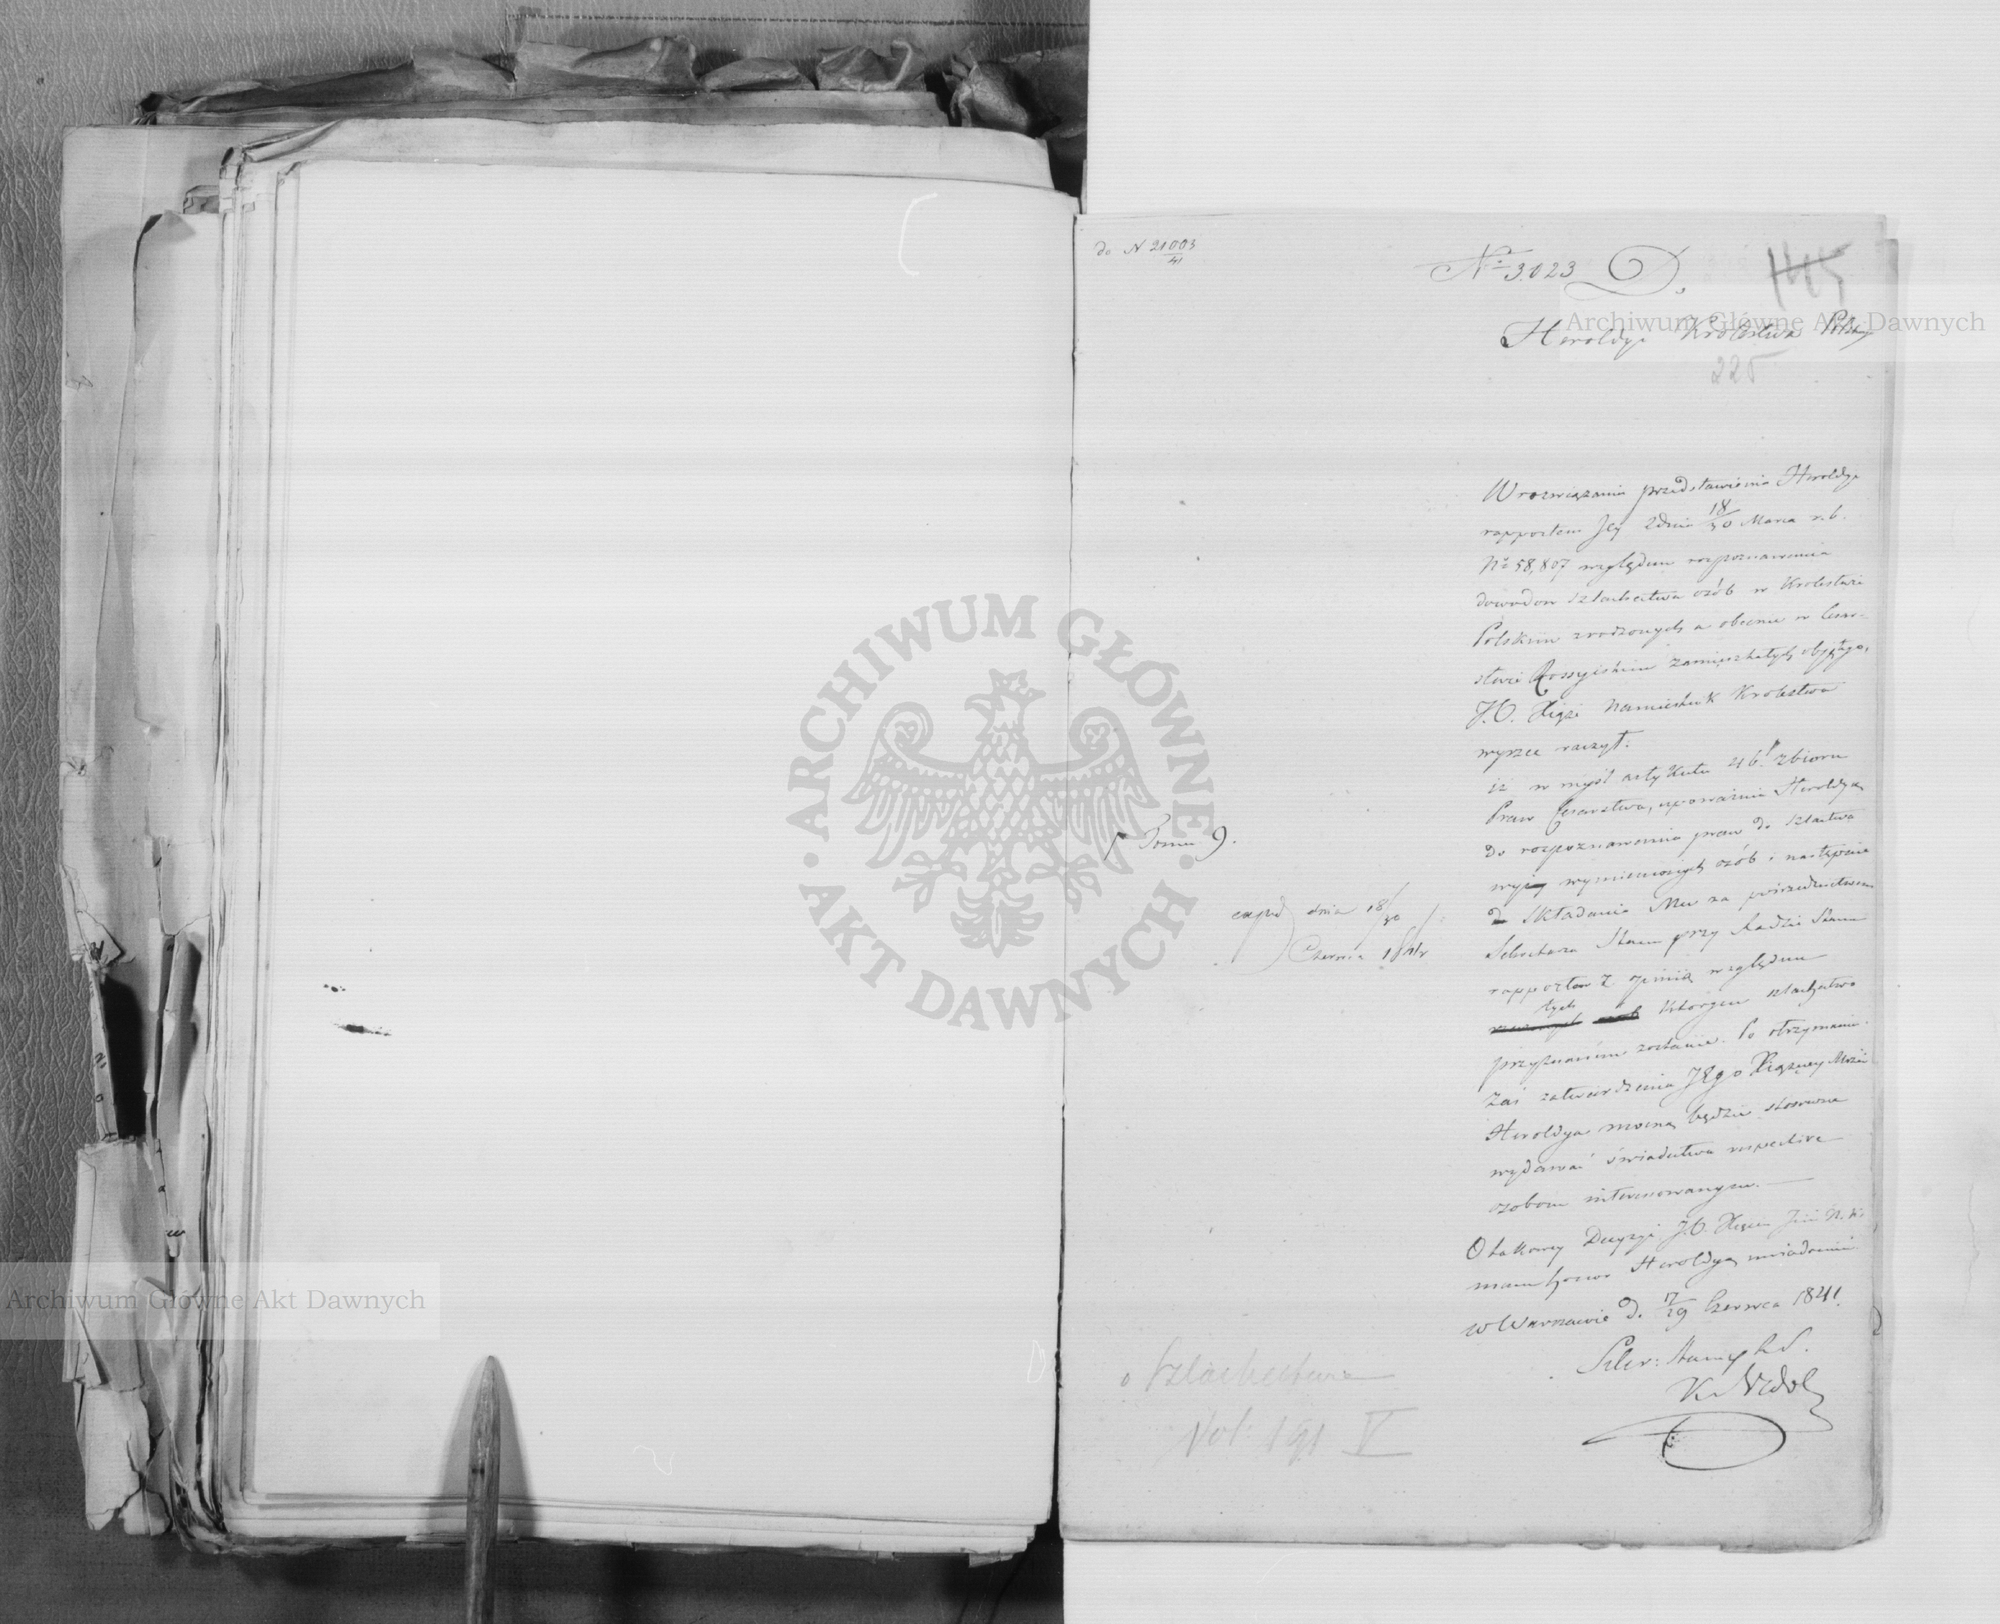 do N 21003/41
Nº 3023 D.
145
Heroldyi Królestwa Polskiego
225
W rozwiązaniu przedstawienia Heroldyi
rapportem Jey z dnia 18/30 Marca r.b.
Nº 58,807 względem rozpoznawania
dowodów szlachectwa osób w Królestwie
Polskim zrodzonych a obecnie w Cesar-
stwie Rossyiskim zamieszkałych objętego,
J.O. Xiąże Namiestnik Królestwa
wyrzec raczył:
iż w myśl artykułu 46. zbioru
Praw Cesarstwa, upoważnia Heroldyą
Tomu 9.
do rozpoznawania praw do szlachectwa
wyżey wymienionych osób i następnie
składania Mu za pośrednictwem
exped dnia 18/30
Czerwca 1841 r
Sekretarza Stanu przy Radzie Stanu
rapportów z opinią względem
tych
którym szlachectwo
przyznaném zostanie. Po otrzymaniu
zaś zatwierdzenia Jego Xiążęcey Mości
Heroldya mocną będzie stosowne
wydawać świadectwa respective
osobom interessowanym. —
O takowey Decyzyi J.O. Xięcia
mam honor Heroldyą uwiadomić.
w Warszawie d. 7/19 Czerwca 1841.
o Szlachectwie
Vol: 191 V
ARCHIWUM GŁÓWNE AKT DAWNYCH
Archiwum Główne Akt Dawnych
Archiwum Główne Akt Dawnych